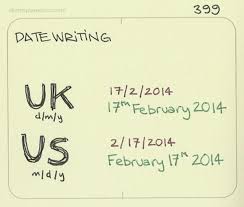 399
DATE WRITING
UK 17/2/2014
d/m/y 17th February 2014
US 2/17/2014
m/d/y February 17th 2014